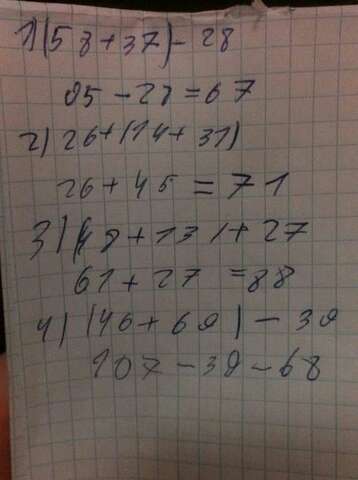 1) (58+37)-28
95-28=67
2) 26+(14+31)
26+45=71
3) (48+13)+27
61+27=88
4) (46+61)-39
107-39-68